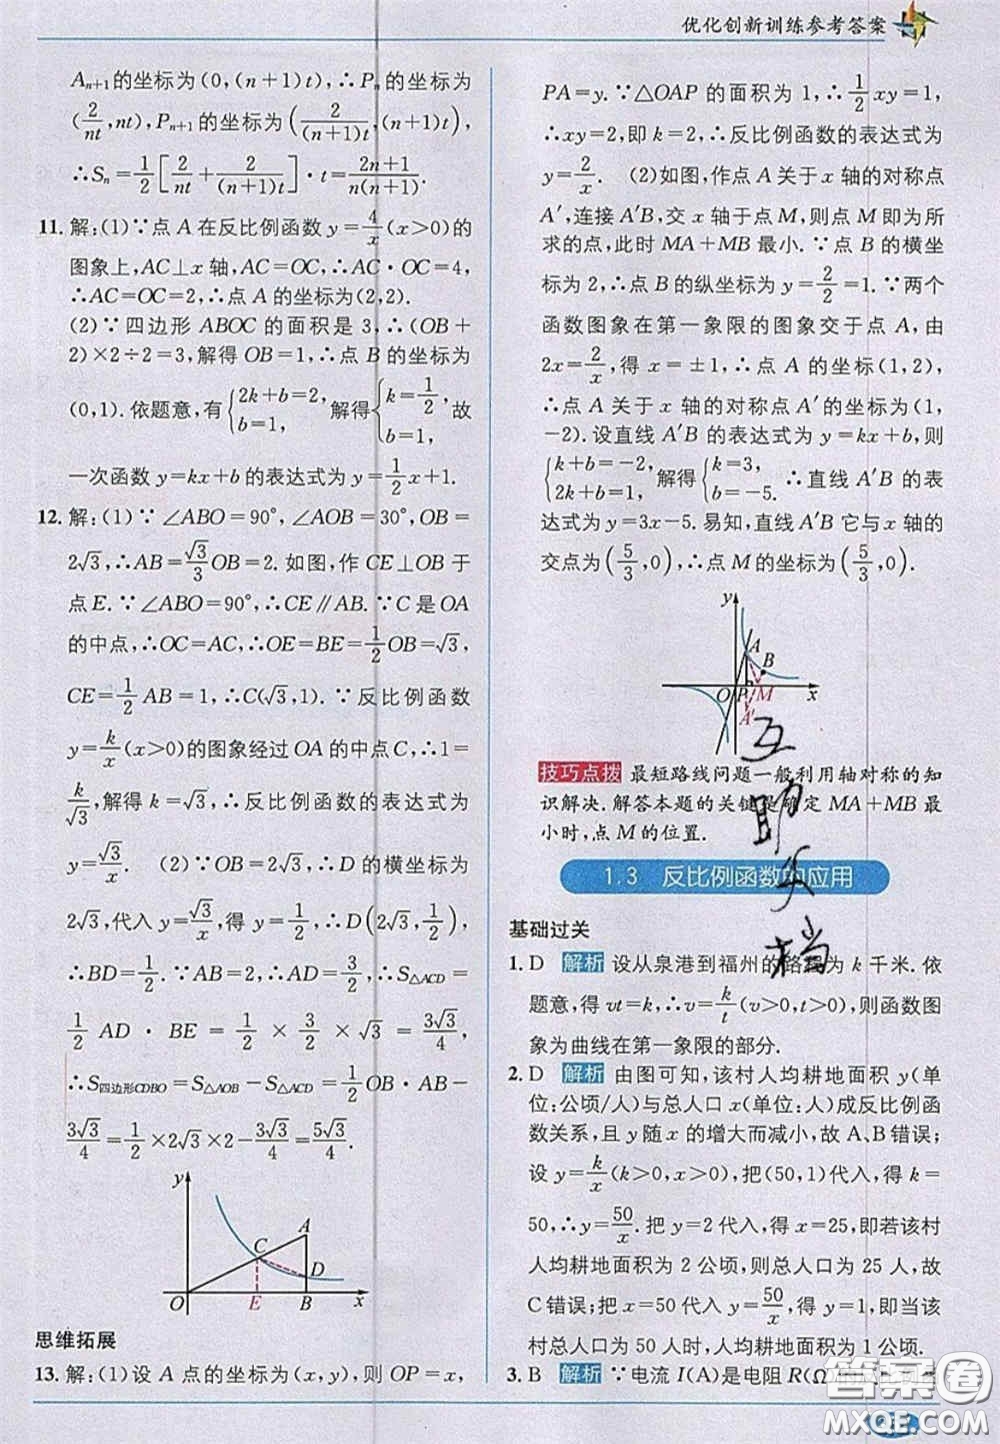 优化创新训练参考答案
Aₙ₊₁的坐标为(0,(n+1)t),∴Pₙ的坐标为
(2/nt,nt),Pₙ₊₁的坐标为(2/(n+1)t,(n+1)t),
∴Sₙ=1/2[2/nt+2/(n+1)t]·t=(2n+1)/n(n+1).
11. 解:(1)∵点A在反比例函数y=4/x(x>0)的
图象上,AC⊥x轴,AC=OC,∴AC·OC=4,
∴AC=OC=2,∴点A的坐标为(2,2).
(2)∵四边形ABOC的面积是3,∴(OB+
2)×2÷2=3,解得OB=1,∴点B的坐标为
(0,1). 依题意,有{2k+b=2, b=1, 解得{k=1/2, b=1, 故
一次函数y=kx+b的表达式为y=1/2x+1.
12. 解:(1)∵∠ABO=90°,∠AOB=30°,OB=
2√3,∴AB=√3/3OB=2. 如图,作CE⊥OB于
点E. ∵∠ABO=90°,∴CE∥AB. ∵C是OA
的中点,∴OC=AC,∴OE=BE=1/2OB=√3,
CE=1/2AB=1,∴C(√3,1). ∵反比例函数
y=k/x(x>0)的图象经过OA的中点C,∴1=
k/√3,解得k=√3,∴反比例函数的表达式为
y=√3/x. (2)∵OB=2√3,∴D的横坐标为
2√3,代入y=√3/x,得y=1/2,∴D(2√3,1/2),
∴BD=1/2. ∵AB=2,∴AD=3/2,∴S△ACD=
1/2AD·BE=1/2×3/2×√3=3√3/4,
∴S四边形CDBO=S△AOB−S△ACD=1/2OB·AB−
3√3/4=1/2×2√3×2−3√3/4=5√3/4.
y
A
C
D
O
E
B
x
思维拓展
13. 解:(1)设A点的坐标为(x,y),则OP=x,
PA=y. ∵△OAP的面积为1,∴1/2xy=1,
∴xy=2,即k=2,∴反比例函数的表达式为
y=2/x. (2)如图,作点A关于x轴的对称点
A′,连接A′B,交x轴于点M,则点M即为所
求的点,此时MA+MB最小. ∵点B的横坐
标为2,∴点B的纵坐标为y=2/2=1. ∵两个
函数图象在第一象限的图象交于点A,由
2x=2/x,得x=±1,∴点A的坐标(1,2),
∴点A关于x轴的对称点A′的坐标为(1,
−2). 设直线A′B的表达式为y=kx+b,则
{k+b=−2, 2k+b=1, 解得{k=3, b=−5. ∴直线A′B的表
达式为y=3x−5. 易知,直线A′B它与x轴的
交点为(5/3,0),∴点M的坐标为(5/3,0).
y
A
B
O
P
M
x
A′
技巧点拨 最短路线问题一般利用轴对称的知
识解决. 解答本题的关键是确定MA+MB最
小时,点M的位置.
互助文档
1.3 反比例函数的应用
基础过关
1. D 解析 设从泉港到福州的路程为k千米. 依
题意,得vt=k,∴v=k/t(v>0,t>0),则函数图
象为曲线在第一象限的部分.
2. D 解析 由图可知,该村人均耕地面积y(单
位:公顷/人)与总人口x(单位:人)成反比例函
数关系,且y随x的增大而减小,故A、B错误;
设y=k/x(k>0,x>0),把(50,1)代入,得k=
50,∴y=50/x. 把y=2代入,得x=25,即若该村
人均耕地面积为2公顷,则总人口为25人,故
C错误;把x=50代入y=50/x,得y=1,即当该
村总人口为50人时,人均耕地面积为1公顷.
3. B 解析 ∵电流I(A)是电阻R(Ω
答案圈
MXQE.COM